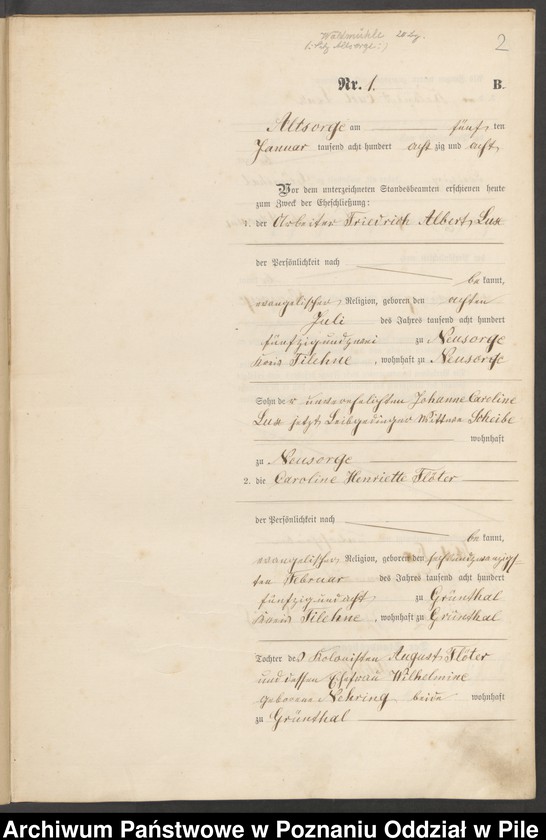 Waldmühle
2
Nr. 1. B.
Altsorge am fünf ten
Januar tausend acht hundert acht zig und acht,
Vor dem unterzeichneten Standesbeamten erschienen heute
zum Zweck der Eheschließung:
1. der Arbeiter Friedrich Albert Lux
der Persönlichkeit nach
be kannt,
evangelischer Religion, geboren den achten
Juli des Jahres tausend acht hundert
fünfzigundzwei zu Neusorge
Kreis Filehne, wohnhaft zu Neusorge
Sohn der unverehelichten Johanne Caroline
Lux jetzt Leibgedinger Wittwe Scheibe
wohnhaft
zu Neusorge
2. die Caroline Henriette Flöter
der Persönlichkeit nach
be kannt,
evangelischer Religion, geboren den sechsundzwanzigs
ten Februar des Jahres tausend acht hundert
fünfzigundacht zu Grünthal
Kreis Filehne, wohnhaft zu Grünthal
Tochter des Kolonisten August Flöter
und dessen Ehefrau Wilhelmine
geborene Nehring beide wohnhaft
zu Grünthal
Archiwum Państwowe w Poznaniu Oddział w Pile